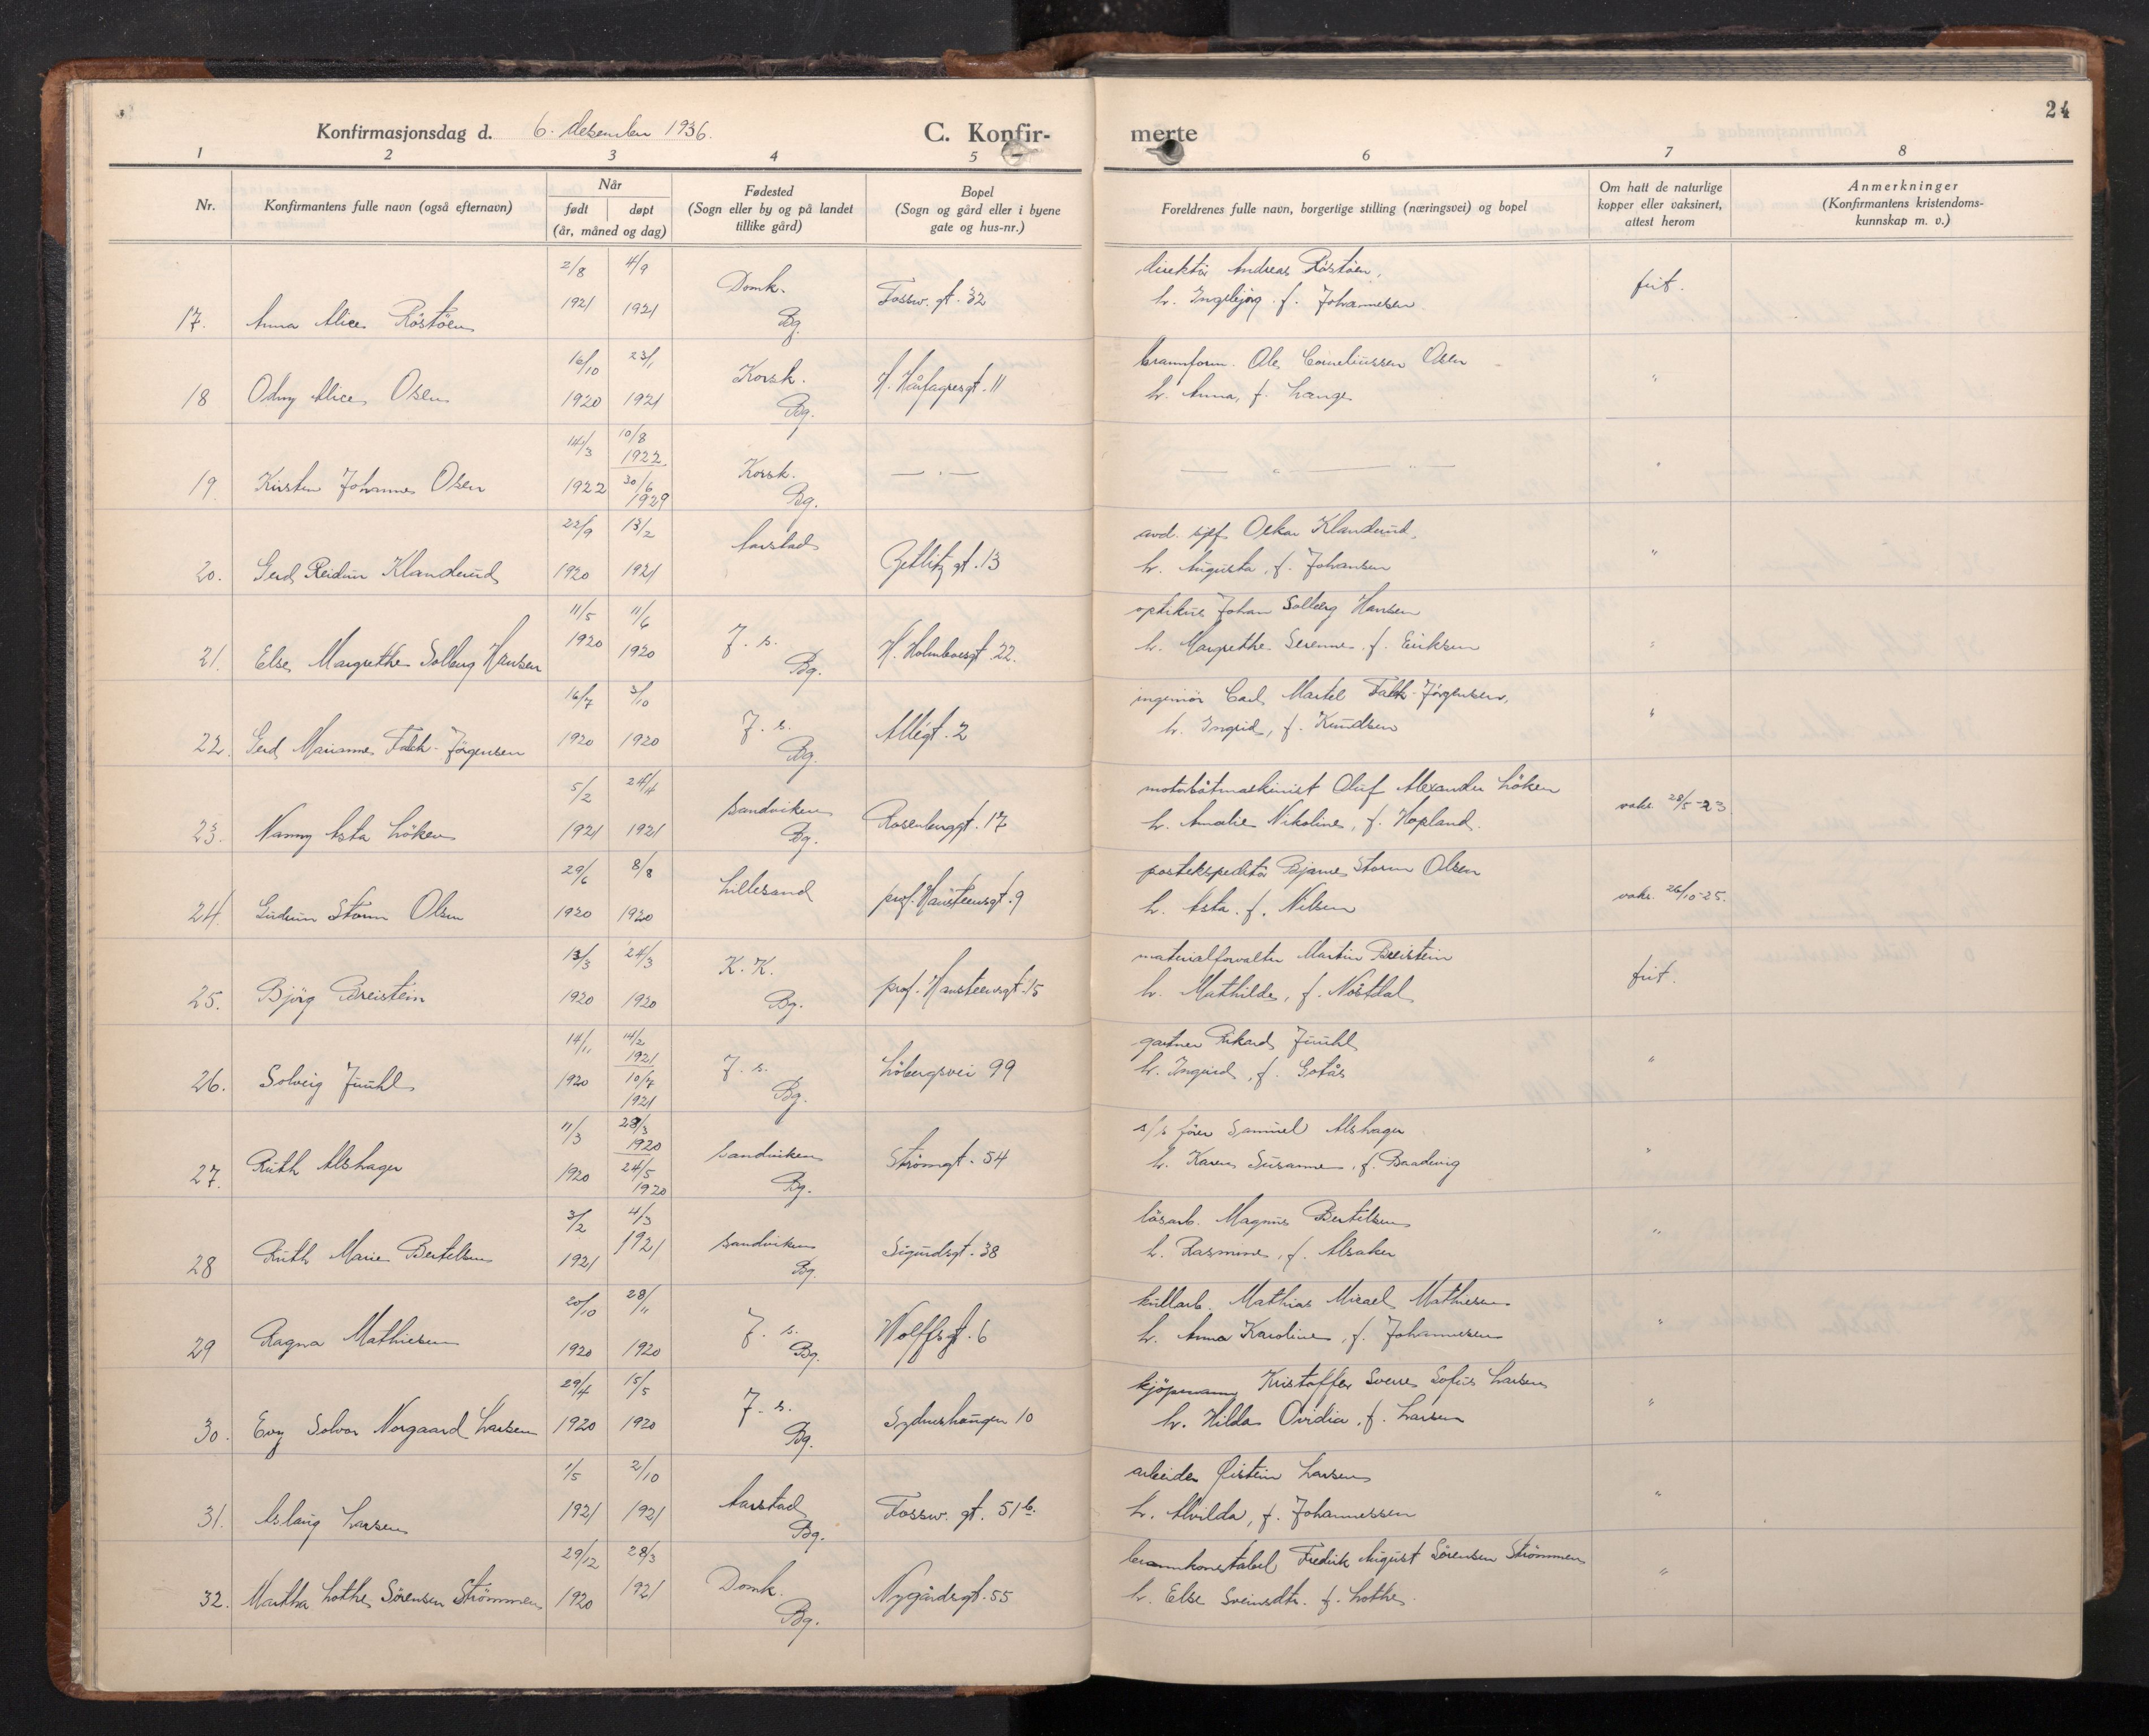 24
Konfirmasjonsdag d. 6. desember 1936.
C. Konfir- merte
1 2 3 4 5 6 7 8
Nr.
Konfirmantens fulle navn (også efternavn)
Når
født døpt
(år, måned og dag)
Fødested
(Sogn eller by og på landet
tillike gård)
Bopel
(Sogn og gård eller i byene
gate og hus-nr.)
Foreldrenes fulle navn, borgertige stilling (næringsvei) og bopel
Om hatt de naturlige
kopper eller vaksinert,
attest herom
Anmerkninger
(Konfirmantens kristendoms-
kunnskap m. v.)
2/8 4/9 Domk. Fossw. gt. 32 direktør Andreas Röstöen, frit.
17. Anna Alice Röstöen 1921 1921 Bg. h. Ingebjørg f. Johannesen
16/10 23/1 Korsk. H. Hårfagresgt. 11 brannform. Ole Corneliussen Osen "
18 Odny Alice Osen 1920 1921 Bg. h. Anna, f. Lange
14/3 10/8 1922 Korsk. — . — — " — " — "
19. Kirsten Johanne Osen 1922 30/6 1929 Bg.
22/9 13/2 Aarstad Zetlitz gt. 13 avd. sjef Oskar Klanderud, "
20. Gerd Reidun Klanderud 1920 1921 h. Augusta, f. Johansen
11/5 11/6 J. s. H. Holmboesgt. 22. optikus Johan Solberg Hansen "
21. Else Margrethe Solberg Hansen 1920 1920 Bg. h. Margrethe Serenne f. Eriksen
16/7 3/10 J. s. Allégt. 2 ingeniør Carl Martel Falck-Jörgensen, "
22. Gerd Marianne Falck-Jörgensen 1920 1920 Bg. h. Ingrid, f. Knudsen
5/2 24/4 Sandviken Rosenberggt. 17 motorbåtmaskinist Oluf Alexander Löken vaks. 28/5-23
23. Nanny Asta Löken 1921 1921 Bg. h. Amalie Nikoline, f. Hopland.
29/6 8/8 Lillesand prof. Hansteensgt. 9 postekspeditör Bjarne Storm Olsen vaks. 26/10-25.
24. Gudrun Storm Olsen 1920 1920 h. Asta f. Nilsen
13/3 24/3 K. K. prof. Hansteensgt. 15 materialforvalter Martin Breistein frit.
25. Björg Breistein 1920 1920 Bg. h. Mathilde, f. Nöstdal
14/11 14/2 1921 J. s. Löbergsvei 99 gartner Rikard Juuhl "
26. Solveig Juuhl 1920 10/7 1921 Bg. h. Ingrid, f. Gotås
11/3 28/3 1920 Sandviken Strömgt. 54 s/s förer Samuel Alshager "
27. Ruth Alshager 1920 24/5 1920 Bg. h. Karen Susanne, f. Baadsvig
3/2 4/3 Sandviken Sigurdsgt. 38 lösarb. Magnus Bertelsen "
28 Ruth Marie Bertelsen 1921 1921 Bg. h. Rasmine, f. Alsaker
20/10 28/11 J. s. Wolffsgt. 6 kullarb. Mathias Micael Mathiesen "
29 Ragna Mathiesen 1920 1920 Bg. h. Anna Karoline, f. Johannesen
29/4 15/5 J. s. Sydneshaugen 10 kjöpmann Kristoffer Sverre Sofus Larsen "
30. Evy Solvor Norgaard Larsen 1920 1920 Bg. h. Hilda Ovidia, f. Larsen
1/5 2/10 Aarstad Fossw. gt. 51 b. arbeider Øistein Larsen "
31. Aslaug Larsen 1921 1921 Bg. h. Alvilda, f. Johannessen
29/12 28/3 Domk. Nygårdsgt. 55 brannkonstabel Fredrik August Sörensen Strömmen "
32. Martha Lothe Sörensen Strömmen 1920 1921 Bg. h. Else Sveinsdtr. f. Lothe.